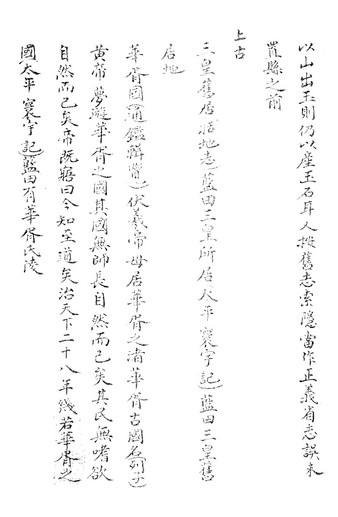 以山出玉則仍以產玉石耳又按舊志索隱當作正義省志誤末
置縣之前
上古
三皇舊居括地志藍田三皇所居太平寰宇記藍田三皇舊
居地
華胥國通鑑輯覽伏羲帝母居華胥之渚華胥古國名列子
黃帝夢遊華胥之國其國無師長自然而已矣其民無嗜欲
自然而已矣帝既寤曰今知至道矣治天下二十八年幾若華胥之
國太平寰宇記藍田有華胥氏陵